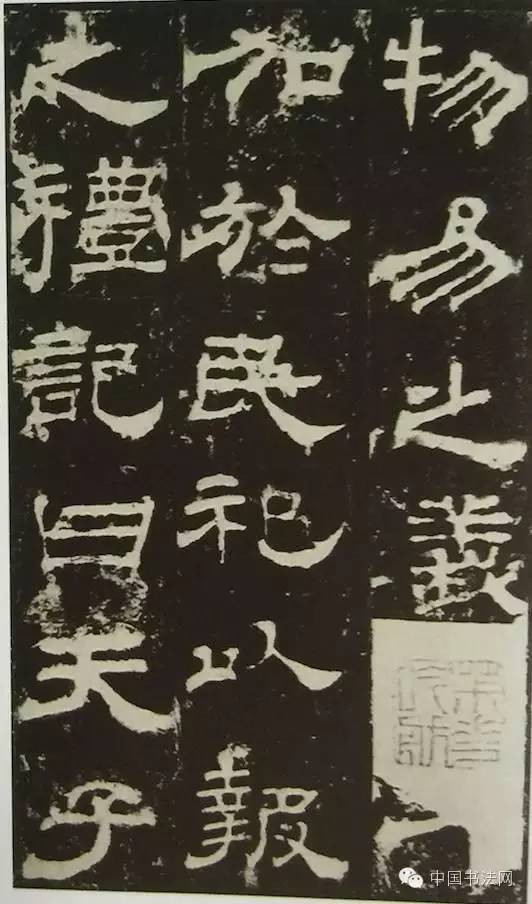 物易之義
加於民祀以報
之禮記曰天子
中国书法网